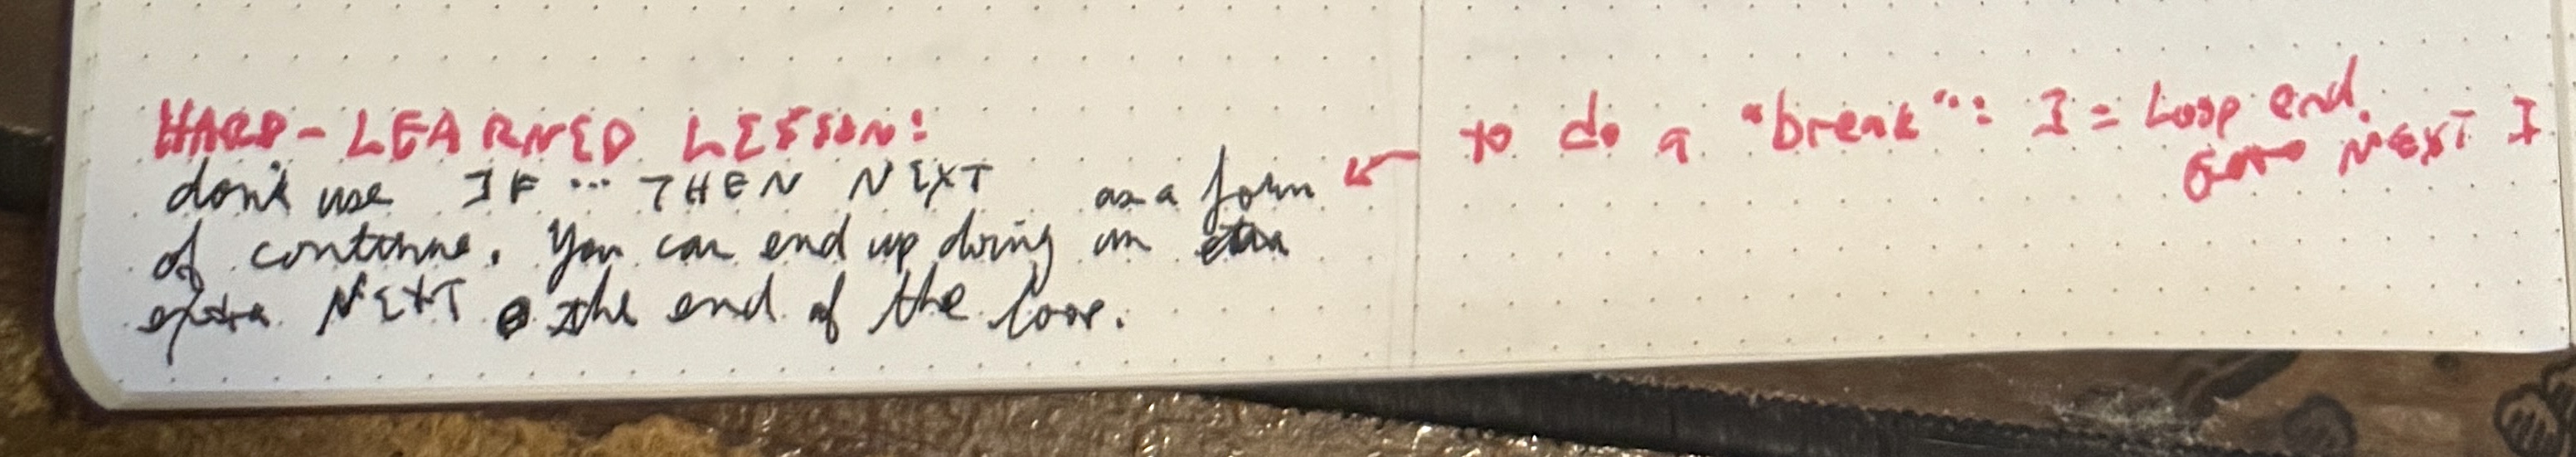 HARD-LEARNED LESSON:
don't use IF ... THEN NEXT as a form
of continue. You can end up doing an
extra NEXT @ the end of the loop.
to do a "break": I = Loop end.
GOTO NEXT I